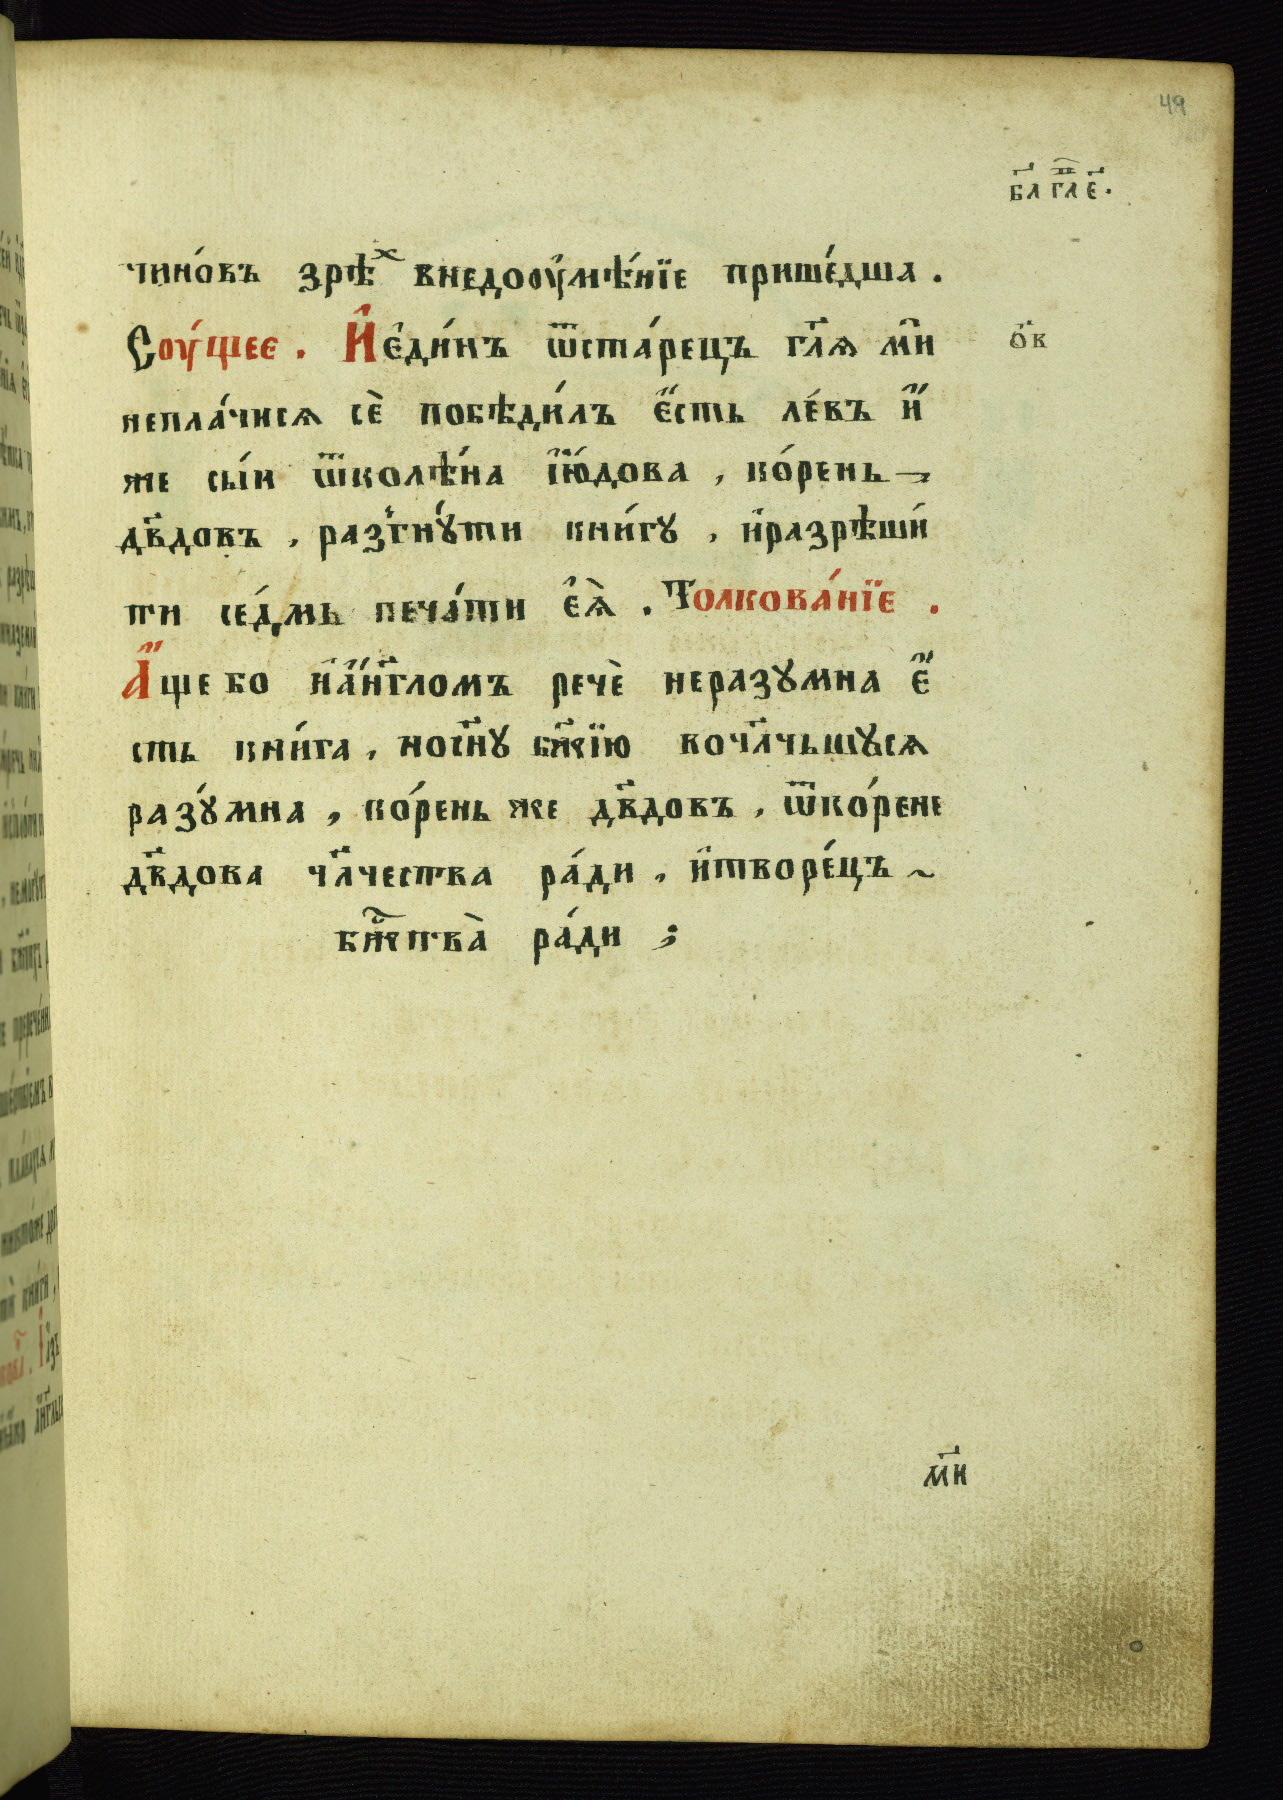 49
г҃л а҃і г҃л е҃.
чино́въ зрѣⷯ внедоѹмѣ́нїе прише́дша .
Сѹ́щее . И҆ є҆ди́нъ ѿста́рецъ гл҃ѧ ми
о҃в
непла́чисѧ сѐ побѣди́лъ є҆́сть ле́въ и҆́
же сы́и ѿколѣ́на і҆ю́дова , ко́рень
дв҃довъ , разгну́ти кни́гꙋ , и҆разрѣши́
ти се́дмь печа́ти є҆ѧ̀ . Толкова́нїе .
А҆́ще бо и҆ а҆́нг҃ломъ речѐ неразꙋмна є҆́
сть кни́га , но сн҃ꙋ бж҃їю вочл҃чьшꙋсѧ
разꙋ́мна , ко́рень же дв҃довъ , ѿко́рене
дв҃дова чл҃чества ра́ди , и҆творе́цъ ~
бж҃ствà ра́ди ;
м҃и